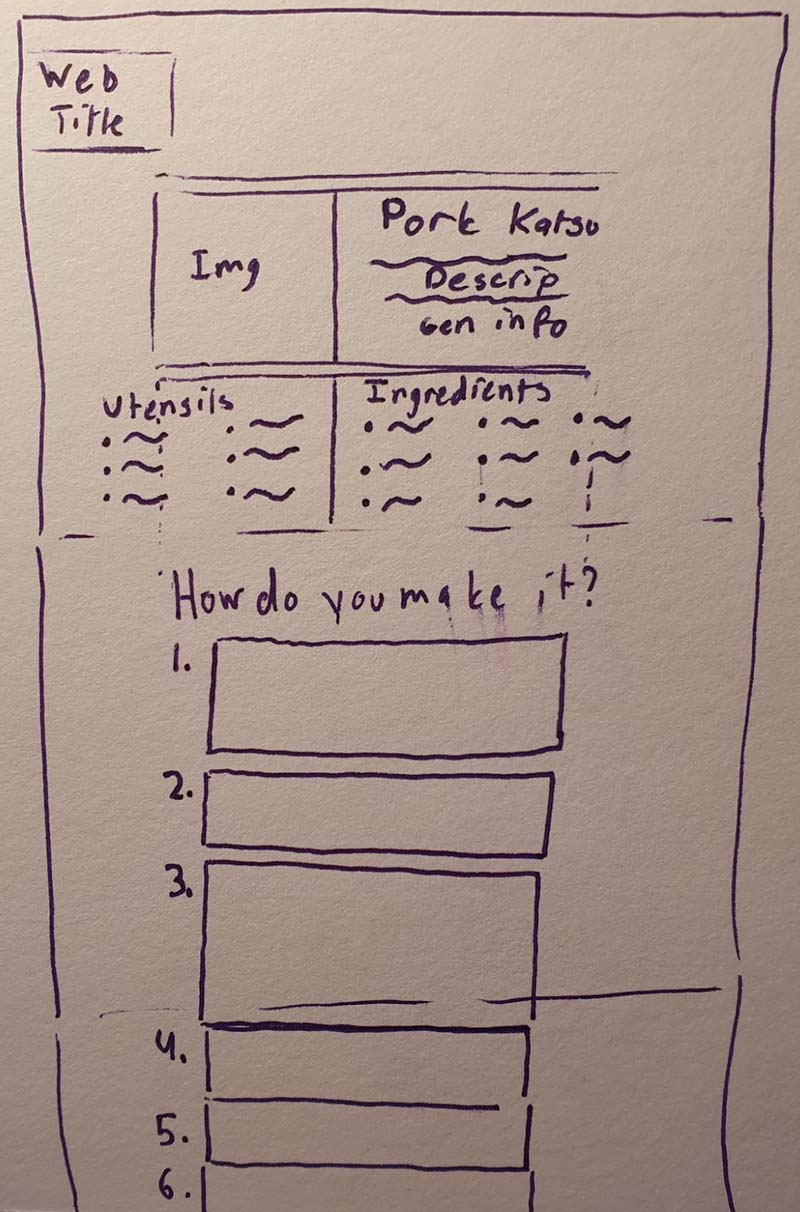 Web
Title
Img
Pork Katsu
Descrip
Gen info
Utensils
Ingredients
How do you make it?
1.
2.
3.
4.
5.
6.